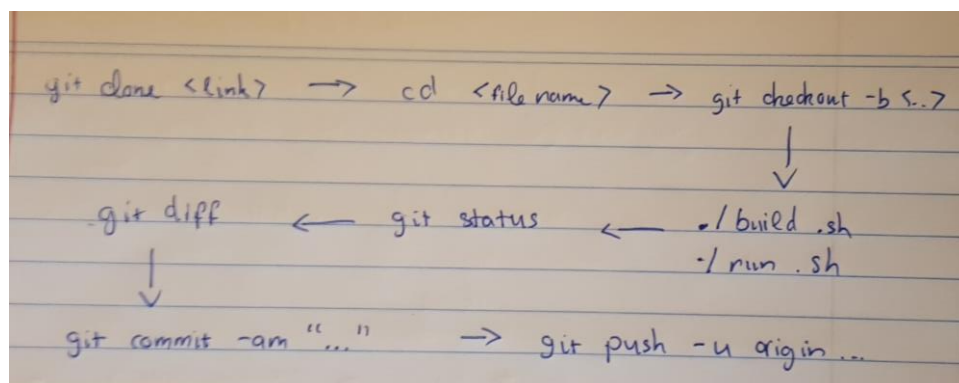 git clone <link> → cd <file name> → git checkout -b <..>
↓
git diff ← git status ← ./build .sh
./run .sh
↓
git commit -am "..." → git push -u origin ...